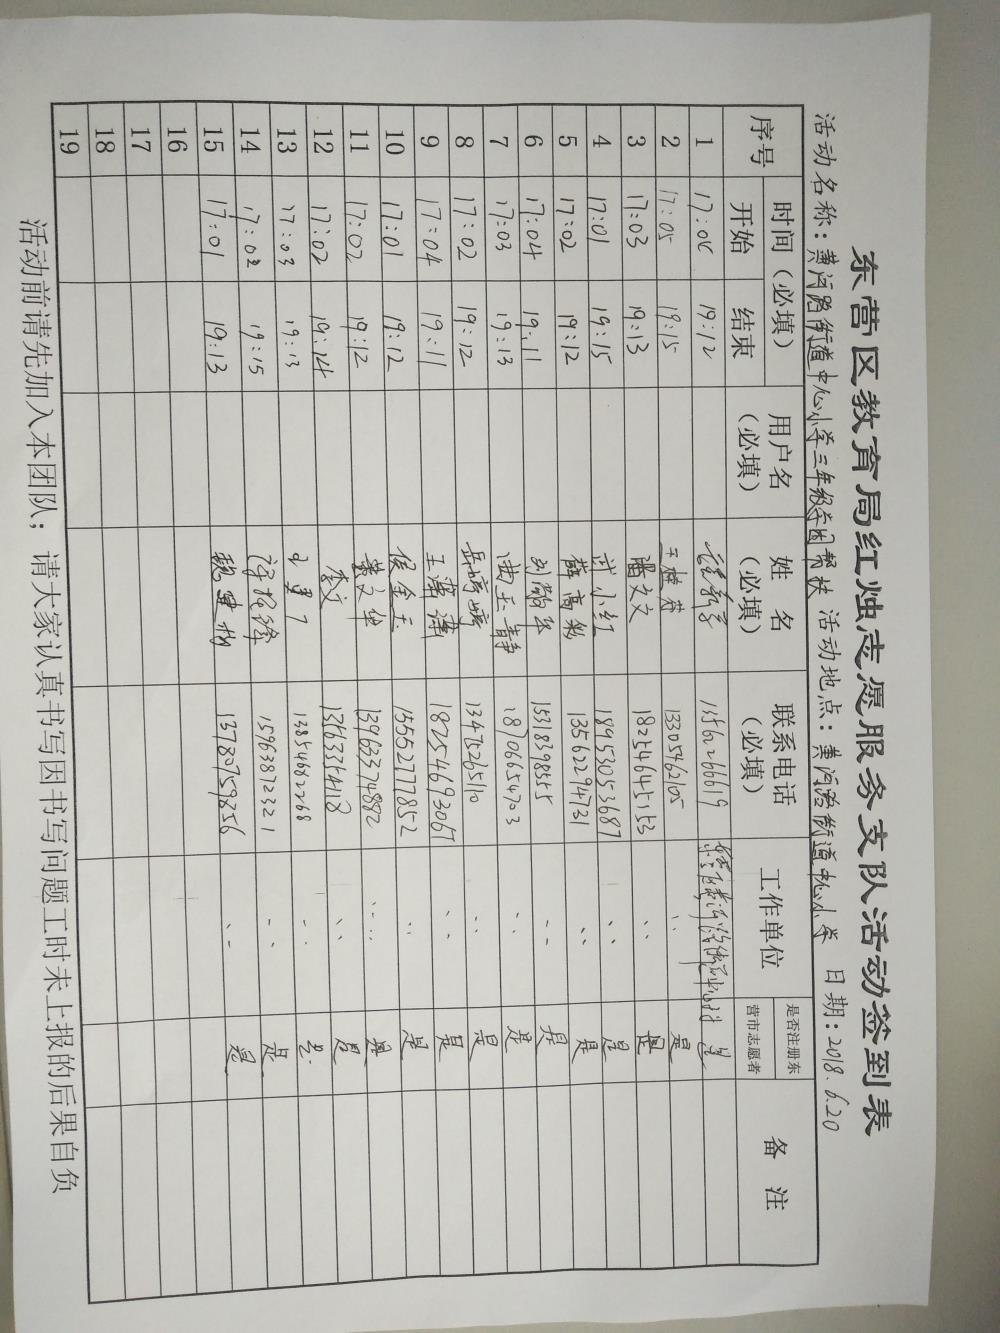 东营区教育局红烛志愿服务支队活动签到表
活动名称：黄河路街道中心小学三年级夺困帮扶 活动地点：黄河路街道中心小学 日期：2018.6.20
序号 时间（必填） 用户名（必填） 姓名（必填） 联系电话（必填） 工作单位 是否注册东营市志愿者 备注
开始 结束
1 17:06 19:12 13562266619 是
2 17:05 19:15 王桂芳 13305462105 〃 是
3 17:03 19:13 潘文文 18254645153 〃 是
4 17:01 19:15 武小红 18953053687 〃 是
5 17:02 19:12 薛高彩 13562294731 〃 是
6 17:04 19:11 15318398555 〃 是
7 17:03 19:13 曲玉静 18706654703 〃 是
8 17:02 19:12 岳婷婷 13475265110 〃 是
9 17:04 19:11 18254693061 〃 是
10 17:01 19:12 侯金玉 15552777852 〃 是
11 17:02 19:12 黄文华 13963374882 〃 是
12 17:02 19:14 李文 〃 是
13 17:03 19:13 13854682268 〃 是
14 17:02 19:15 15963812321 〃 是
15 17:01 19:13 13780759856 〃 是
16
17
18
19
活动前请先加入本团队；请大家认真书写因书写问题工时未上报的后果自负